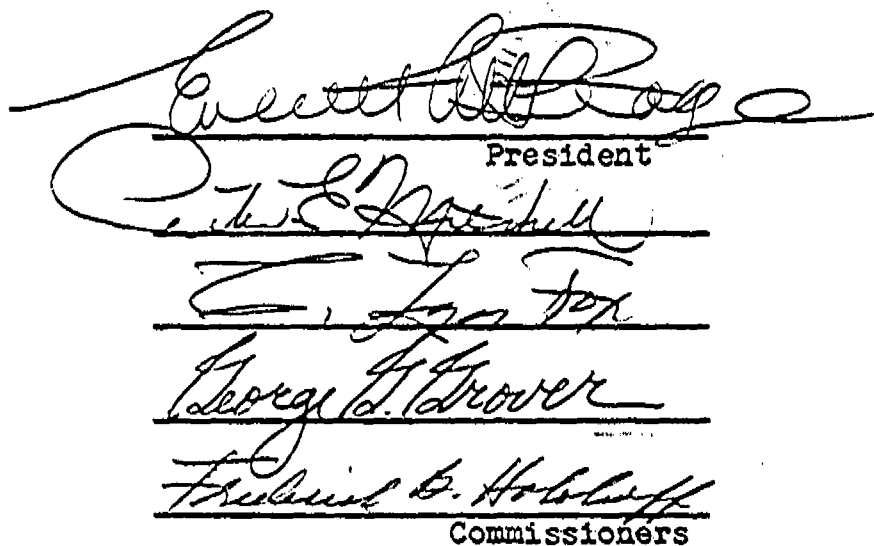 Everett C. McKeage
President
E. Lyn Fox
George G. Grover
Frederick B. Holoboff
Commissioners